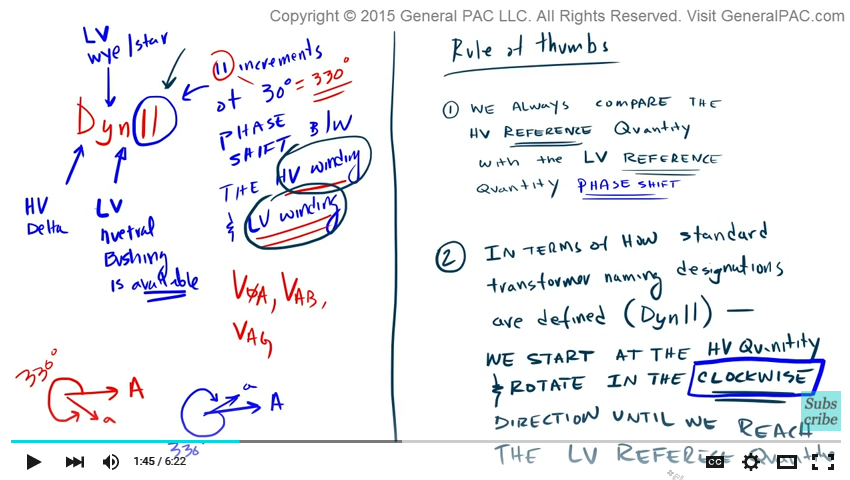 Copyright © 2015 General PAC LLC. All Rights Reserved. Visit GeneralPAC.com
LV
wye/star
Dyn11
HV
Delta
LV
nuetral
Bushing
is available
11 increments
of 30° = 330°
PHASE
SHIFT B/W
THE HV winding
& LV winding
VØA, VAB,
VAG
330°
A
a
a
A
330°
Rule of thumbs
① WE ALWAYS COMPARE THE
HV REFERENCE Quantity
with the LV REFERENCE
Quantity PHASE SHIFT
② IN TERMS OF HOW standard
transformer naming designations
are defined (Dyn11) —
WE START AT THE HV QUINITITY
& ROTATE IN THE CLOCKWISE
DIRECTION UNTIL WE REACH
THE LV REFERESE Quantity
Subs
cribe
1:45 / 6:22
CC